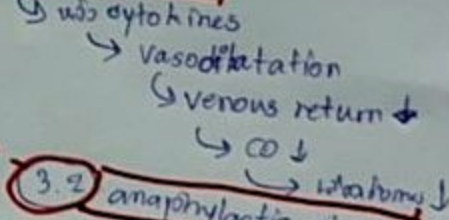 ↳ หลั่ง cytokines
↳ vasodilatation
↳ venous return ↓
↳ CO ↓
↳ ↓
3.2 anaphylactic